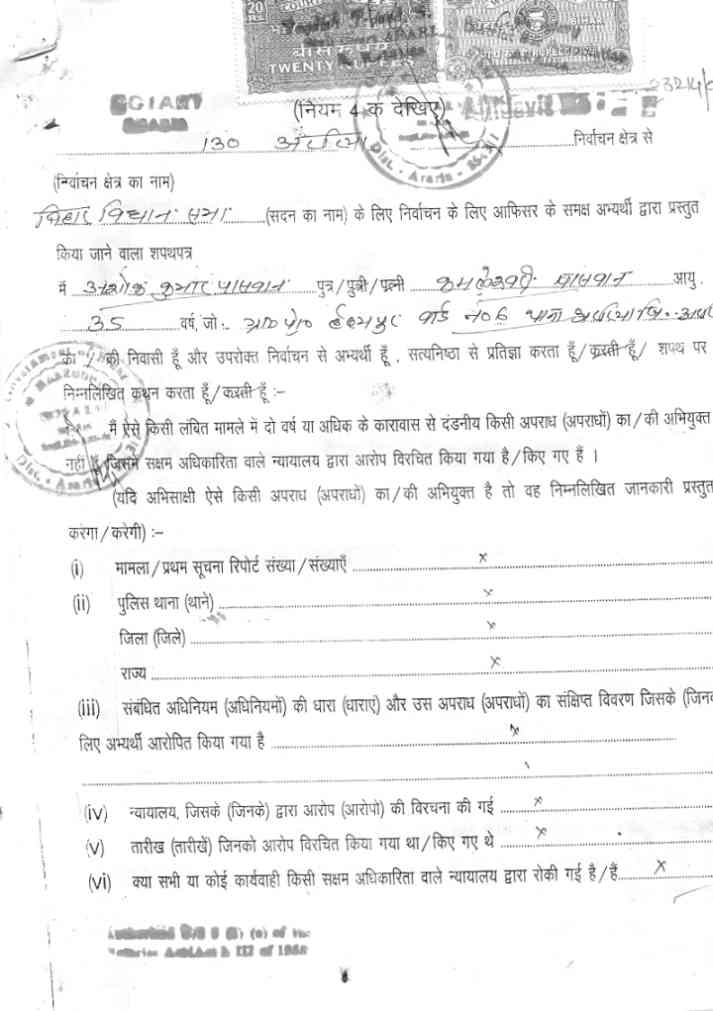 20
RS
बीस रूपये
TWENTY RUPEES
BIHAR
NOTARY
(नियम 4 क देखिए)
130 अररिया निर्वाचन क्षेत्र से
(निर्वाचन क्षेत्र का नाम)
बिहार विधान सभा (सदन का नाम) के लिए निर्वाचन के लिए आफिसर के समक्ष अभ्यर्थी द्वारा प्रस्तुत
किया जाने वाला शपथपत्र
मैं अशोक कुमार पासवान पुत्र/पुत्री/पत्नी कमलेश्वरी पासवान आयु
35 वर्ष, जो:- ग्राम पो० वार्ड न० 6 थाना अररिया जि०-
का/की निवासी हूँ और उपरोक्त निर्वाचन से अभ्यर्थी हूँ, सत्यनिष्ठा से प्रतिज्ञा करता हूँ/करती हूँ/ शपथ पर
निम्नलिखित कथन करता हूँ/करती हूँ :–
मैं ऐसे किसी लंबित मामले में दो वर्ष या अधिक के कारावास से दंडनीय किसी अपराध (अपराधों) का/की अभियुक्त
नहीं हूँ जिसमें सक्षम अधिकारिता वाले न्यायालय द्वारा आरोप विरचित किया गया है/किए गए हैं ।
(यदि अभिसाक्षी ऐसे किसी अपराध (अपराधों) का/की अभियुक्त है तो वह निम्नलिखित जानकारी प्रस्तुत
करगा/करेगी) :–
(i) मामला/प्रथम सूचना रिपोर्ट संख्या/संख्याएँ x
(ii) पुलिस थाना (थाने) x
जिला (जिले) x
राज्य x
(iii) संबंधित अधिनियम (अधिनियमों) की धारा (धाराए) और उस अपराध (अपराधों) का संक्षिप्त विवरण जिसके (जिनव
लिए अभ्यर्थी आरोपित किया गया है x
(iv) न्यायालय, जिसके (जिनके) द्वारा आरोप (आरोपो) की विरचना की गई x
(v) तारीख (तारीखें) जिनको आरोप विरचित किया गया था/किए गए थे x
(vi) क्या सभी या कोई कार्यवाही किसी सक्षम अधिकारिता वाले न्यायालय द्वारा रोकी गई है/हैं x